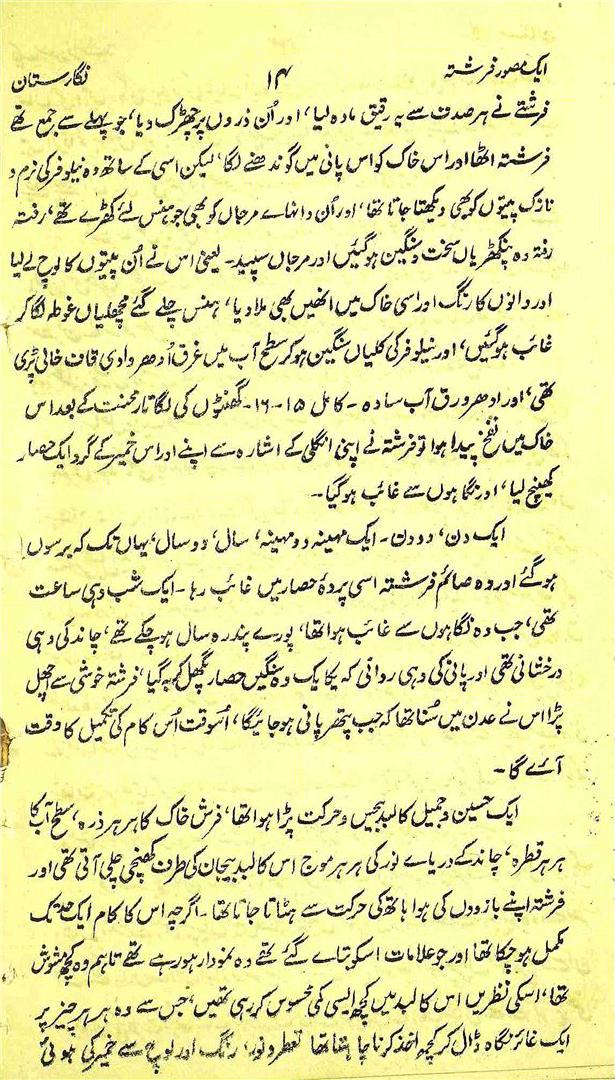 ایک مصور فرشتہ ۱۴ نگارستان
فرشتے نے ہر صدف سے یہ رقیق مادہ لیا، اور اُن ذروں پر چھڑک دیا، جو پہلے سے جمع تھے
فرشتہ اٹھا اور اس خاک کو اس پانی میں گوندھنے لگا، لیکن اسی کے ساتھ وہ نیلوفر کی نرم و
نازک پتیوں کو بھی دیکھتا جاتا تھا، اور اُن دانہاے مرجاں کو بھی جو ہنس لئے کھڑے تھے، رفتہ
رفتہ وہ پنکھڑیاں سخت و سنگین ہوگئیں اور مرجاں سپید۔ یعنی اس نے اُن پتیوں کا لوچ لے لیا
اور دانوں کا رنگ اور اسی خاک میں انھیں بھی ملا دیا، ہنس چلے گئے مچھلیاں غوطہ لگا کر
غائب ہوگئیں، اور نیلوفر کی کلیاں سنگین ہو کر سطح آب میں غرق اُدھر وادی قاف خالی پڑی
تھی، اور ادھر ورق آب سادہ۔ کامل ۱۵-۱۶- گھنٹوں کی لگاتار محنت کے بعد اس
خاک میں نفخ پیدا ہوا تو فرشتہ نے اپنی انگلی کے اشارہ سے اپنے اور اس خمیر کے گرد ایک حصار
کھینچ لیا، اور نگاہوں سے غائب ہوگیا۔
ایک دن، دو دن۔ ایک مہینہ دو مہینہ، سال، دو سال، یہاں تک کہ برسوں
ہوگئے اور وہ صائم فرشتہ اسی پردۂ حصار میں غائب رہا۔ ایک شب وہی ساعت
تھی، جب وہ نگاہوں سے غائب ہوا تھا، پورے پندرہ سال ہوچکے تھے، چاند کی وہی
درخشانی تھی اور پانی کی وہی روانی کہ یکایک وہ سنگیں حصار پگھل کر بہ گیا، فرشتہ خوشی سے اچھل
پڑا اس نے عدن میں سُنا تھا کہ جب پتھر پانی ہوجائیگا، اُسوقت اُس کام کی تکمیل کا وقت
آئے گا۔
ایک حسین و جمیل کالبد بیحس و حرکت پڑا ہوا تھا، فرش خاک کا ہر ہر ذرہ، سطح آب کا
ہر ہر قطرہ، چاند کے دریاے نور کی ہر ہر موج اس کالبد بیجان کی طرف کھنچی چلی آتی تھی اور
فرشتہ اپنے بازوؤں کی ہوا ہاتھ کی حرکت سے ہٹاتا جاتا تھا۔ اگرچہ اس کا کام ایک حد تک
مکمل ہوچکا تھا اور جو علامات اسکو بتاے گئے تھے وہ نمودار ہو رہے تھے تاہم وہ کچھ مشوش
تھا، اسکی نظریں اس کالبد میں کچھ ایسی کمی محسوس کر رہی تھیں، جس سے وہ ہر ہر چیز پر
ایک غائر نگاہ ڈال کر کچھ اخذ کرنا چاہتا تھا تعطر و نور، رنگ اور لوچ سے خمیر کی ہوئی